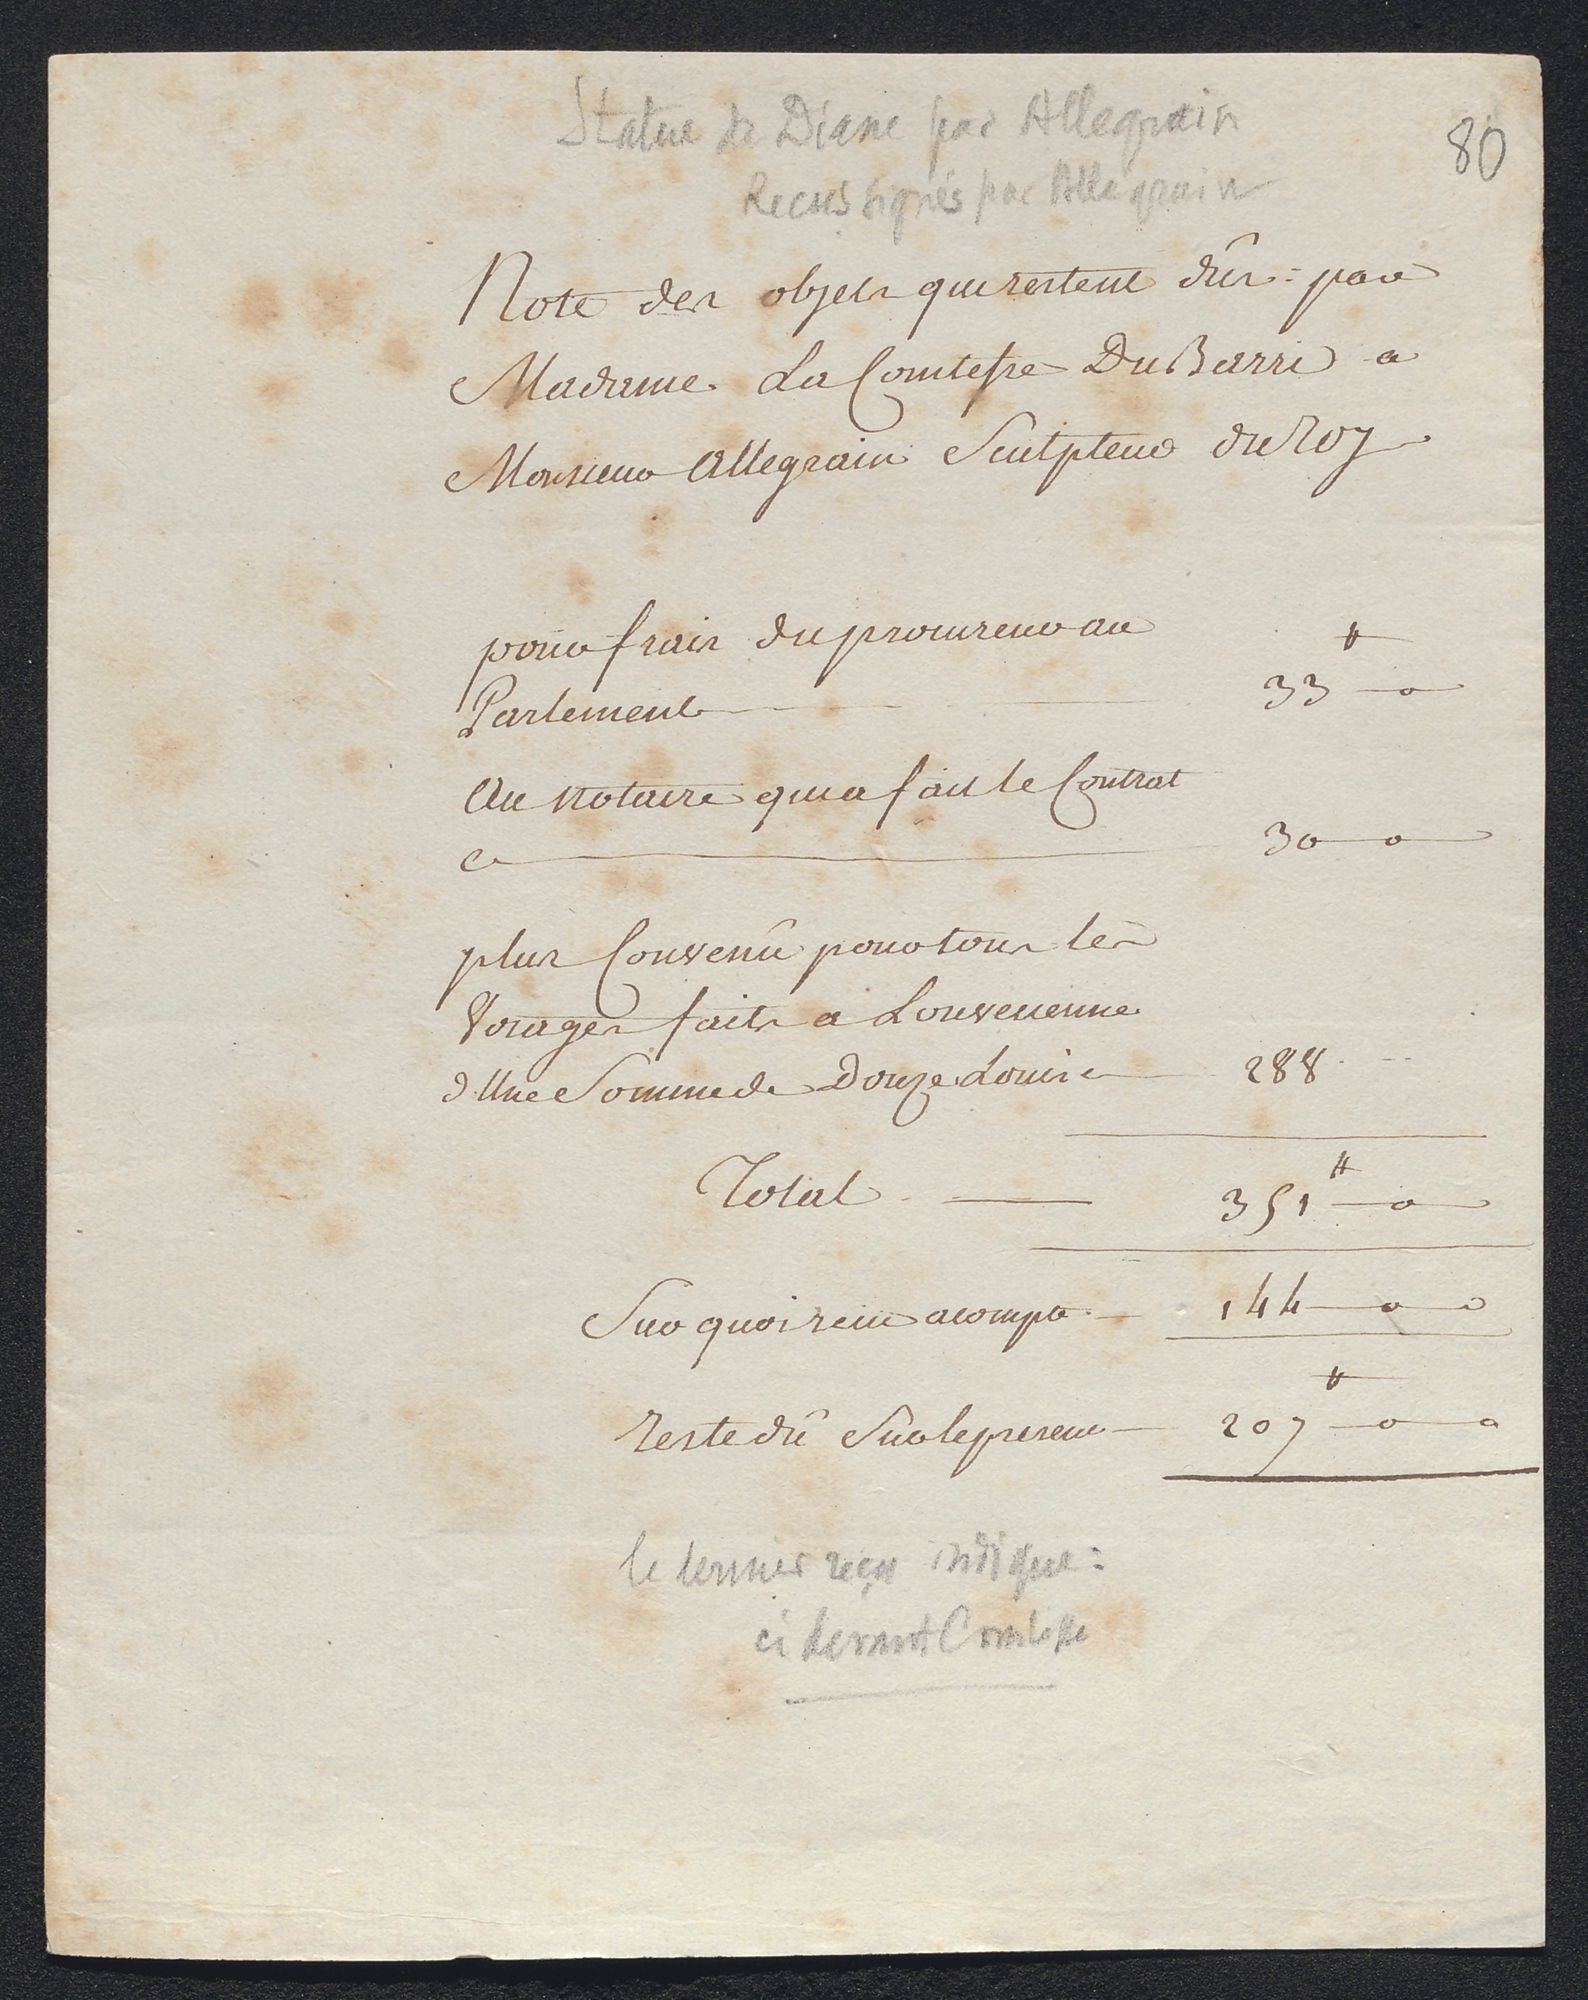 Statue de Diane par Allegrain
80
Recus signés par Allegrain
Note des objets qui restent dûs : par
Madame La Comtesse Du Barri a
Monsieur Allegrain Sculpteur du Roy
pour frais du procureur au
Parlement 33 ₶ o
Au Notaire qui a fait le Contrat
Cy 30 o
plus Convenû pour tous les
Voiages faits a Louvecienne
d'Une Somme de Douze Louis 288
Total 351 ₶ o
Sur quoi reçu acompte 144 o o
reste dû Sur le present 207 ₶ o o
le dernier reçu indique :
ci devant Comtesse